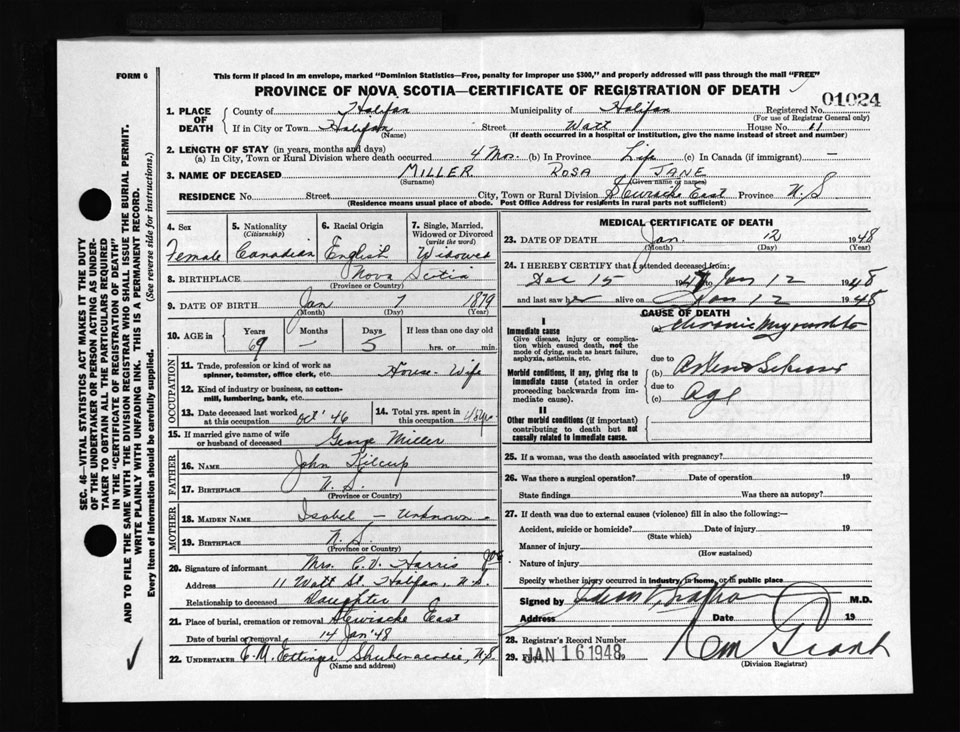 FORM 6
This form if placed in an envelope, marked "Dominion Statistics—Free, penalty for improper use $300," and properly addressed will pass through the mail "FREE"
PROVINCE OF NOVA SCOTIA—CERTIFICATE OF REGISTRATION OF DEATH
01024
1. PLACE OF DEATH County of Halifax Municipality of Halifax Registered No.
(For use of Registrar General only)
If in City or Town Halifax Street Watt House No. 11
(Name) (If death occurred in a hospital or institution, give the name instead of street and number)
2. LENGTH OF STAY (in years, months and days)
(a) In City, Town or Rural Division where death occurred 4 Mos. (b) In Province Life (c) In Canada (if immigrant) —
3. NAME OF DECEASED MILLER ROSA JANE
(Surname) (Given name or names)
RESIDENCE No. Street City, Town or Rural Division Stewiacke East Province N.S
(Residence means usual place of abode. Post Office Address for residents in rural parts not sufficient)
4. Sex Female
5. Nationality (Citizenship) Canadian
6. Racial Origin English
7. Single, Married, Widowed or Divorced (write the word) Widowed
8. BIRTHPLACE Nova Scotia
(Province or Country)
9. DATE OF BIRTH Jan 7 1879
(Month) (Day) (Year)
10. AGE in Years Months Days If less than one day old
69 — 5 hrs. or min.
OCCUPATION
11. Trade, profession or kind of work as spinner, teamster, office clerk, etc. House-Wife
12. Kind of industry or business, as cotton-mill, lumbering, bank, etc.
13. Date deceased last worked at this occupation Oct '46
14. Total yrs. spent in this occupation
15. If married give name of wife or husband of deceased George Miller
FATHER
16. NAME John Kilcup
17. BIRTHPLACE N.S.
(Province or Country)
MOTHER
18. MAIDEN NAME Isobel — Unknown
19. BIRTHPLACE N.S.
(Province or Country)
20. Signature of informant Mrs. C.V. Harris
Address 11 Watt St. Halifax, N.S.
Relationship to deceased Daughter
21. Place of burial, cremation or removal Stewiacke East
Date of burial or removal 14 Jan '48
22. UNDERTAKER E.M. Ettinger Shubenacadie, N.S.
(Name and address)
MEDICAL CERTIFICATE OF DEATH
23. DATE OF DEATH Jan. 12 1948
(Month) (Day) (Year)
24. I HEREBY CERTIFY that I attended deceased from:
Dec 15 1947 to Jan 12 1948
and last saw her alive on Jan 12 1948
CAUSE OF DEATH
I
Immediate cause
Give disease, injury or complication which caused death, not the mode of dying, such as heart failure, asphyxia, asthenia, etc.
(a) Chronic
due to
Morbid conditions, if any, giving rise to immediate cause (stated in order proceeding backwards from immediate cause).
(b)
due to
(c) Age
II
Other morbid conditions (if important) contributing to death but not causally related to immediate cause.
25. If a woman, was the death associated with pregnancy?
26. Was there a surgical operation? Date of operation 19
State findings Was there an autopsy?
27. If death was due to external causes (violence) fill in also the following:—
Accident, suicide or homicide? Date of injury 19
(State which)
Manner of injury
(How sustained)
Nature of injury
Specify whether injury occurred in industry, in home, or in public place
Signed by M.D.
Address Date 19
28. Registrar's Record Number
29. Filed JAN 16 1948
(Division Registrar)
SEC. 46—VITAL STATISTICS ACT MAKES IT THE DUTY
OF THE UNDERTAKER OR PERSON ACTING AS UNDER-
TAKER TO OBTAIN ALL THE PARTICULARS REQUIRED
IN THE "CERTIFICATE OF REGISTRATION OF DEATH"
AND TO FILE THE SAME WITH THE DIVISION REGISTRAR WHO SHALL ISSUE THE BURIAL PERMIT.
WRITE PLAINLY WITH UNFADING INK. THIS IS A PERMANENT RECORD.
Every item of information should be carefully supplied. (See reverse side for instructions.)